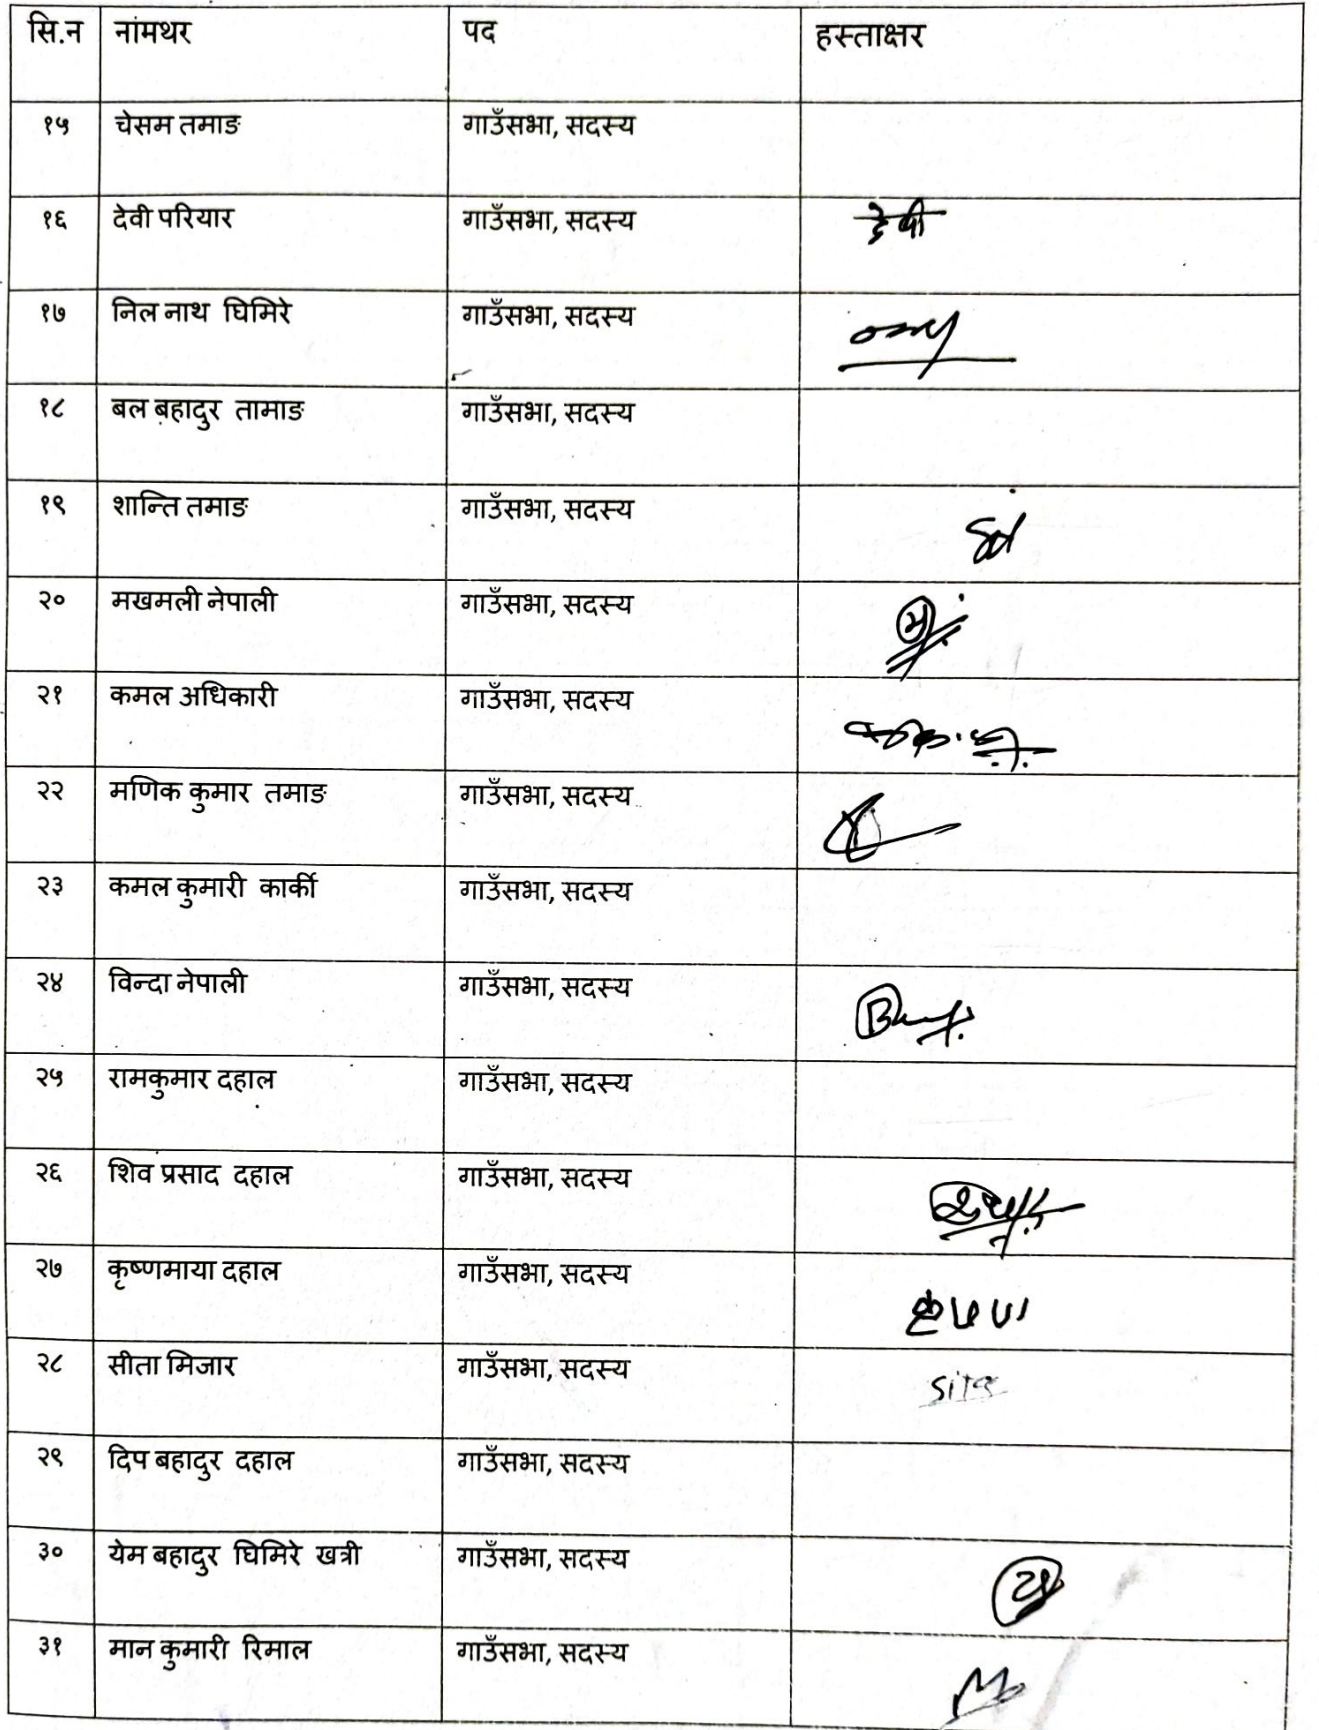 सि.न नांमथर पद हस्ताक्षर
१५ चेसम तमाङ गाउँसभा, सदस्य
१६ देवी परियार गाउँसभा, सदस्य देवी
१७ निल नाथ घिमिरे गाउँसभा, सदस्य
१८ बल बहादुर तामाङ गाउँसभा, सदस्य
१९ शान्ति तमाङ गाउँसभा, सदस्य
२० मखमली नेपाली गाउँसभा, सदस्य
२१ कमल अधिकारी गाउँसभा, सदस्य
२२ मणिक कुमार तमाङ गाउँसभा, सदस्य
२३ कमल कुमारी कार्की गाउँसभा, सदस्य
२४ विन्दा नेपाली गाउँसभा, सदस्य
२५ रामकुमार दहाल गाउँसभा, सदस्य
२६ शिव प्रसाद दहाल गाउँसभा, सदस्य
२७ कृष्णमाया दहाल गाउँसभा, सदस्य
२८ सीता मिजार गाउँसभा, सदस्य sita
२९ दिप बहादुर दहाल गाउँसभा, सदस्य
३० येम बहादुर घिमिरे खत्री गाउँसभा, सदस्य
३१ मान कुमारी रिमाल गाउँसभा, सदस्य